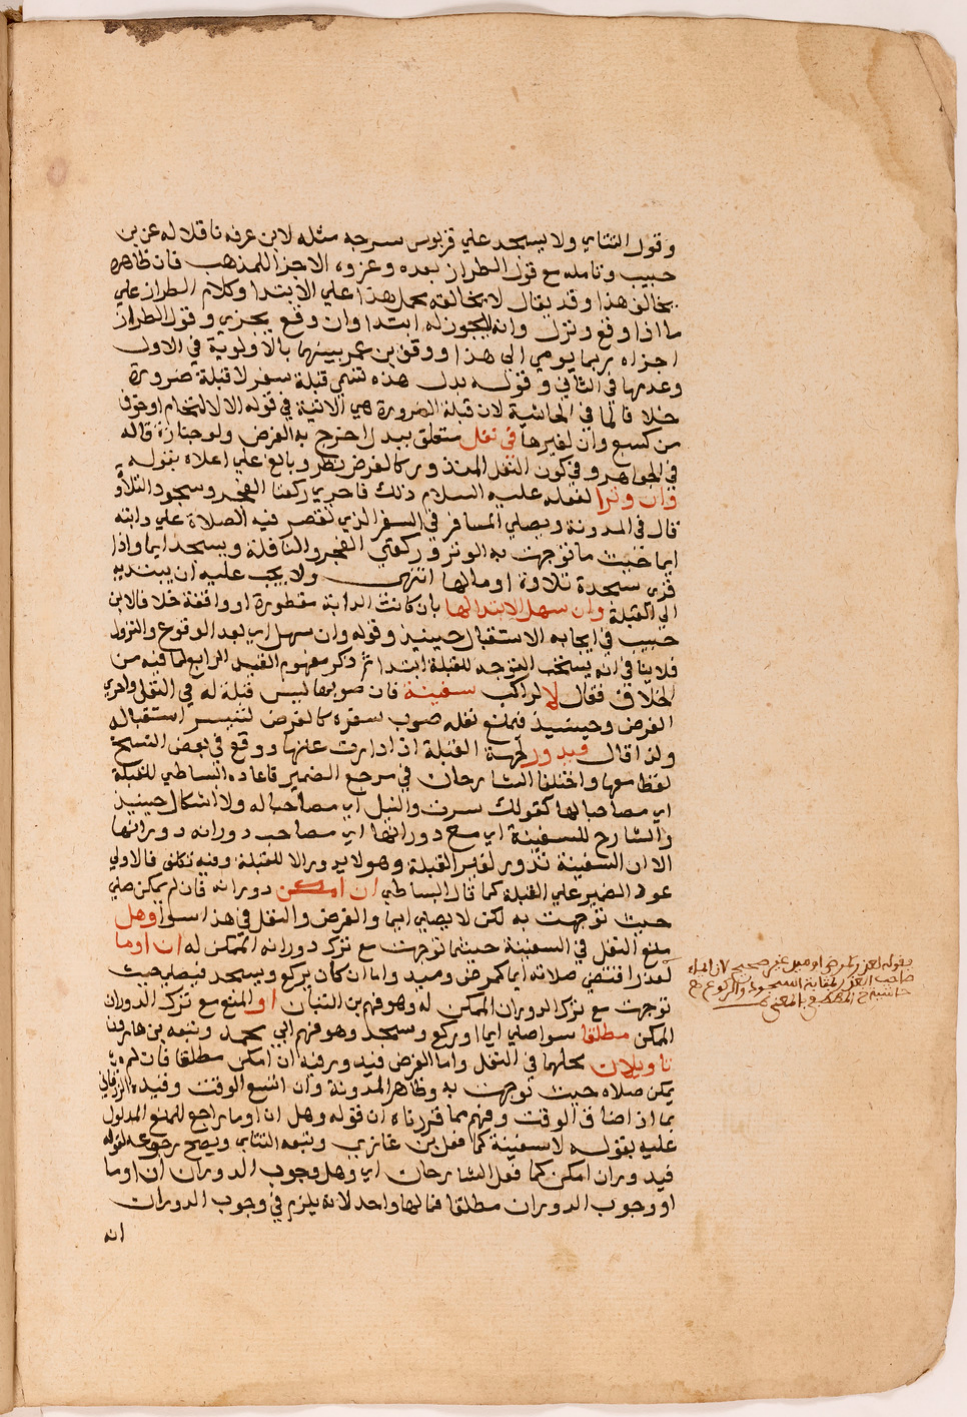 وقول التتاي ولا يسجد علي قربوس سرجه مثله لابن عرفه ناقلا له عن بن
حبيب وتامله مع قول الطراز بعده وعزوه الاجزا للمذهب فان ظاهره
يخالف هذا وقد يقال لا يخالفه بحمل هذا علي الابتدا وكلام الطراز علي
ما اذا وقع ونزل وانه لا يجوز له ابتدا وان وقع يجزي وقول الطراز
اجزاه ربما يومي الي هذا ووفق بن عمر بينهما بالاولوية في الاول
وعدمها في الثاني وقوله بدل هذه تسمي قبلة سفر لا قبلة ضرورة
خلافا لما في الحاشية لان قبلة الضرورة هي الاتية في قوله الا لالتحام او خوف
من كسبع وان لغيرها في نفل متعلق ببدل احترز به الفرض ولو جنازة قاله
في الجواهر وفي كون النفل المنذور كالفرض نظر وبالغ علي اعلاه بقوله
وان وترا لفعله عليه السلام ذلك فاحري ركعتا الفجر وسجود التلاوة
قال في المدونة ويصلي المسافر في السفر الذي تقصر فيه الصلاة علي دابته
ايما حيث ما توجهت به الوتر وركعتي الفجر والنافلة ويسجد ايما واذا
قري سجدة تلاوة اوما لها انتهى ولا يجب عليه ان يبتديه
الي القبلة وان سهل الابتدا لها بان كانت الدابة مقطورة او واقفة خلافا لابن
حبيب في ايجابه الاستقبال حينيذ وقوله وان سهل اي بعد الوقوع والنزول
فلا ينافي انه يستحب التوجه للقبلة ابتدا ثم ذكر مفهوم القيد الرابع لما فيه من
الخلاف فقال لا لراكب سفينة فان صوبها ليس قبلة له في النفل واحري
الفرض وحينيذ فيمنع نفله صوب سفره كالفرض لتيسر استقباله
ولذا قال فيدور لجهة القبلة اذا دارت عنها ووقع في بعض النسخ
لفظ معها واختلف الشارحان في مرجع الضمير فاعاده البساطي للقبلة
اي مصاحبا لها كقولك سرت والنيل اي مصاحبا له ولا اشكال حينيذ
والشارح للسفينة اي مع دورانها اي مصاحب دورانه دورانها
الا ان السفينة تدور لغير القبلة وهو لا يدور الا للقبلة وفيه تكلف فالاولي
عود الضمير علي القبلة كما قال البساطي ان امكن دورانه فان لم يمكن صلي
حيث توجهت به لكن لا يصلي ايما والفرض والنفل في هذا سوا وهل
منع النفل في السفينة حيثما توجهت مع ترك دورانه الممكن له ان اوما
لعذر اقتضي صلاته ايما كمرض وميد واما ان كان يركع ويسجد فيصلي حيث
توجهت مع ترك الدوران الممكن له وهو فهم بن التبان او المنع مع ترك الدوران
الممكن مطلقا سوا صلي ايما او ركع وسجد وهو فهم ابي محمد وتبعه بن هارون
تاويلان محلهما في النفل واما الفرض فيدور فيه ان امكن مطلقا فان لم
يمكن صلاه حيث توجهت به وظاهر المدونة وان اتسع الوقت وقيده الزرقاني
بما اذا ضاق الوقت وفهم مما قررناه ان قوله وهل ان اوما راجع للمنع المدلول
عليه بقوله لا سفينة كما فعل بن غازي وتبعه التتاي ويصح رجوعه لقوله
فيدور ان امكن كما فعل الشارحان اي وهل وجوب الدوران ان اوما
او وجوب الدوران مطلقا فمالهما واحد لانه يلزم في وجوب الدوران
انه
بقوله لعذر كمرض او ميد غير صحيح لان المراد
صاحب العذر لمقابلة السجود والركوع مع